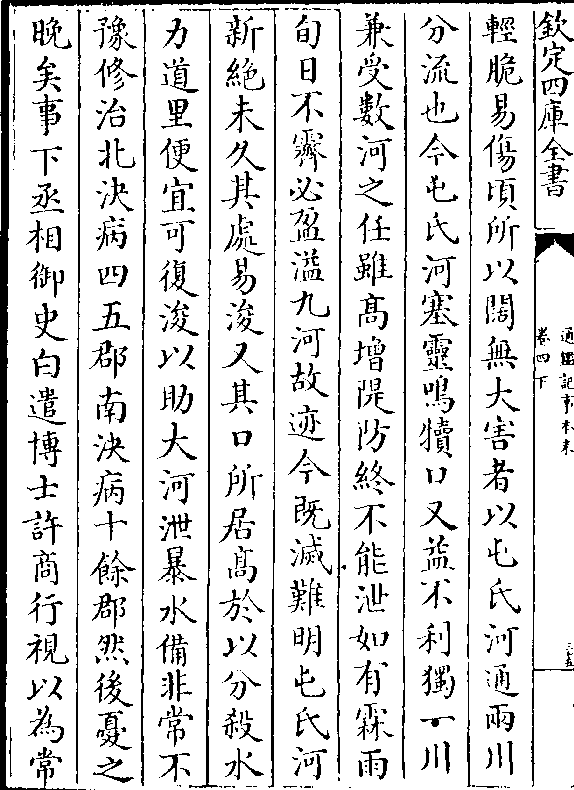 欽定四庫全書
通鑑記事本末
卷四下
輕脆易傷頃所以闊無大害者以屯氏河通兩川
分流也今屯氏河塞靈鳴犢口又益不利獨一川
兼受數河之任雖髙增隄防終不能泄如有霖雨
旬日不霽必盈溢九河故迹今既滅難明屯氏河
新絶未久其處易浚又其口所居髙於以分殺水
力道里便宜可復浚以助大河泄暴水備非常不
豫修治北決病四五郡南決病十餘郡然後憂之
晚矣事下丞相御史白遣博士許商行視以為常